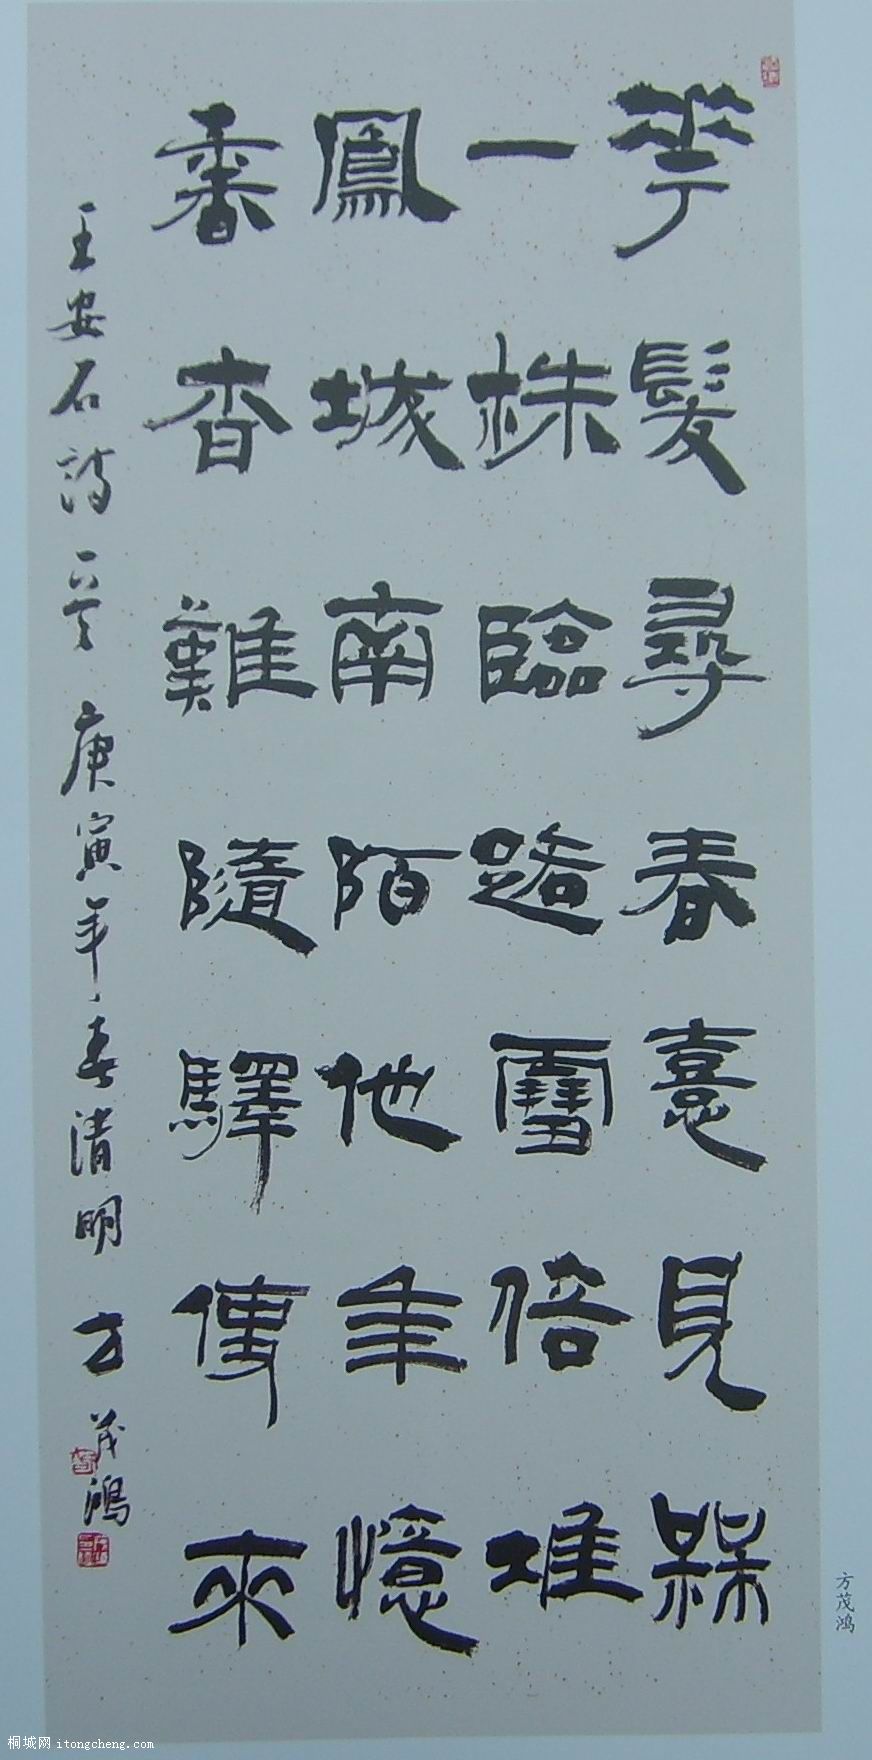 華髮尋春憙見槑
一株臨路雪倍堆
鳳城南陌他年憶
香杳難隨驛傳來
王安石詩一首 庚寅年春清明 方茂鴻
方茂鸿
桐城网 itongcheng.com